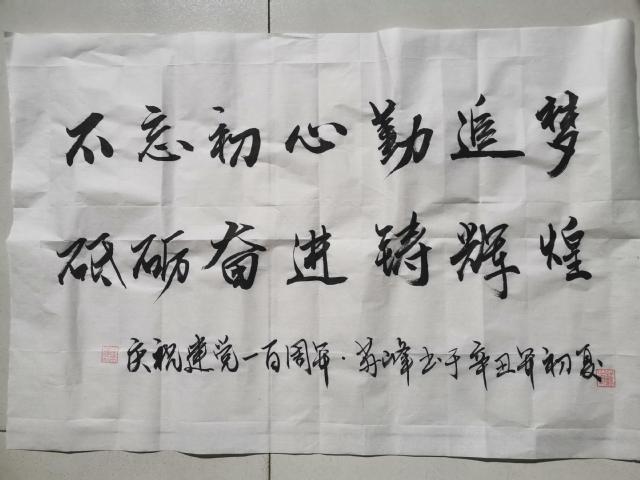 不忘初心勤追梦
砥砺奋进铸辉煌
庆祝建党一百周年·苏峰书于辛丑年初夏